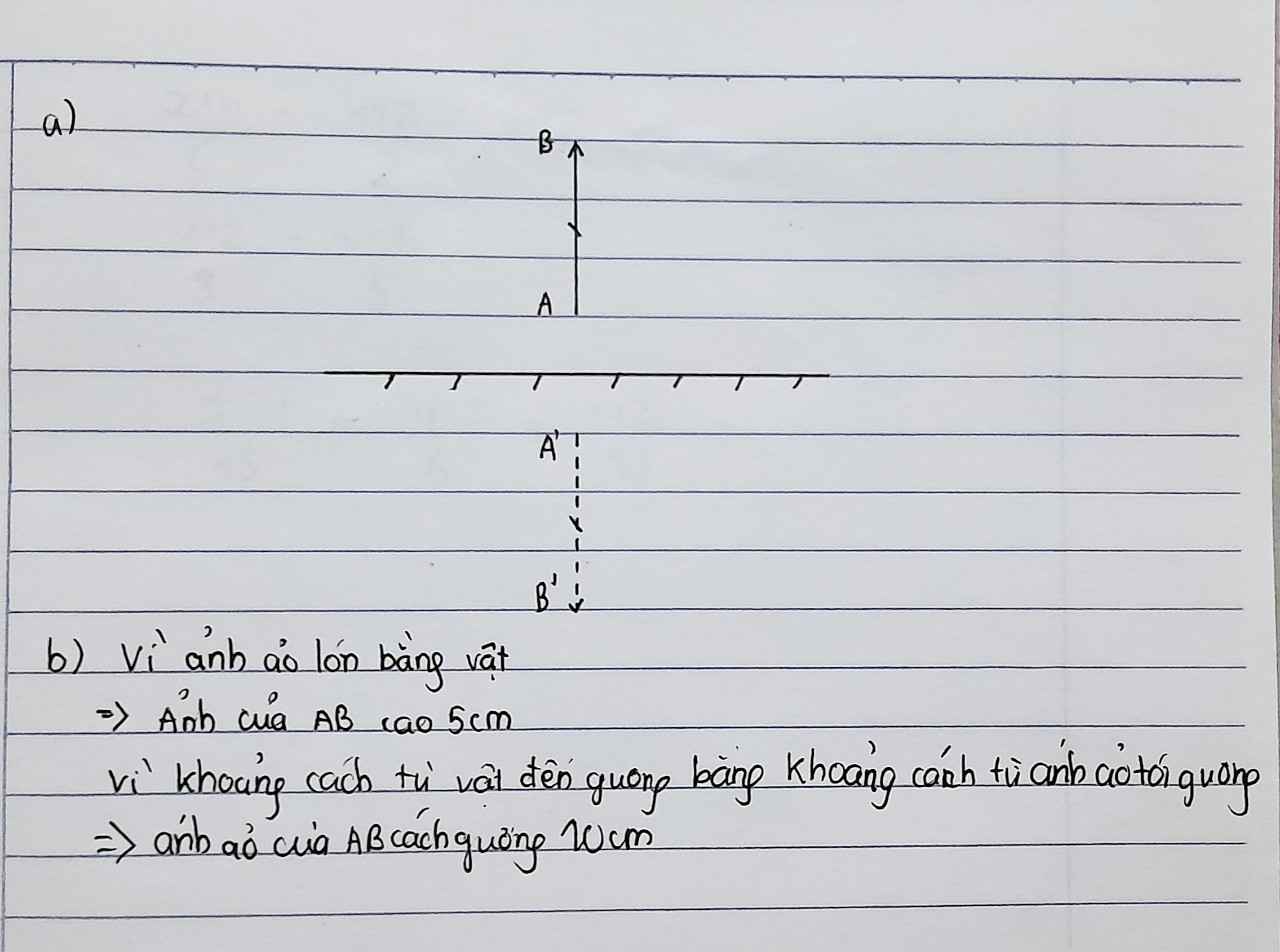 a)
B
A
A'
B'
b) Vì ảnh ảo lớn bằng vật
=> Ảnh của AB cao 5cm
Vì khoảng cách từ vật đến gương bằng khoảng cách từ ảnh ảo tới gương
=> ảnh ảo của AB cách gương 10cm